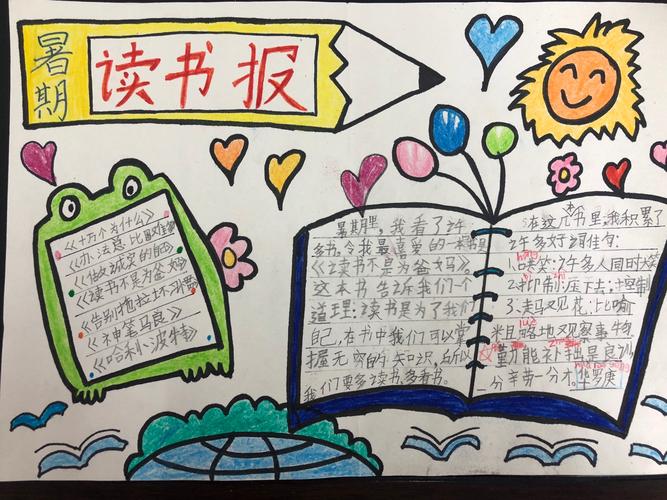 暑期
读书报
《十万个为什么》
《办法总比困难多》
《做诚实的自己》
《读书不是为爸妈》
《告别拖拉坏习惯》
《神笔马良》
《哈利·波特》
暑期里，我看了许
多书，令我最喜爱的一本书是
《读书不是为爸妈》
这本书告诉我们一个
道理：读书是为了我们
自己，在书中我们可以掌
握无穷的知识，所以
我们要多读书，多看书。
在这几书里，我积累了
许多好词佳句：
hōng
1.哄笑：许多人同时大笑
2.抑制：压下去；控制
3.走马观花：比喻
粗略地观察事物
勤能补拙是良训，
一分辛劳一分才。华罗庚